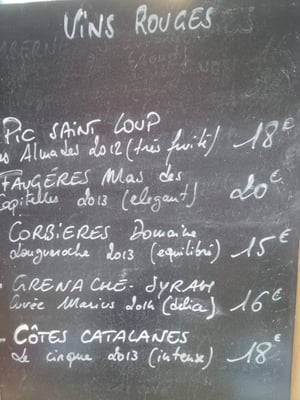 VINS ROUGES
PIC SAINT LOUP
Almades 2012 (très fruité) 18€
FAUGÉRES Mas des
Capitelles 2013 (elegant) 20€
CORBIERES Domaine
Longueroche 2013 (equilibré) 15€
- GRENACHE-SYRAH
Cuvée Marius 2014 (délice) 16€
- CÔTES CATALANES
Le cinque 2013 (intense) 18€